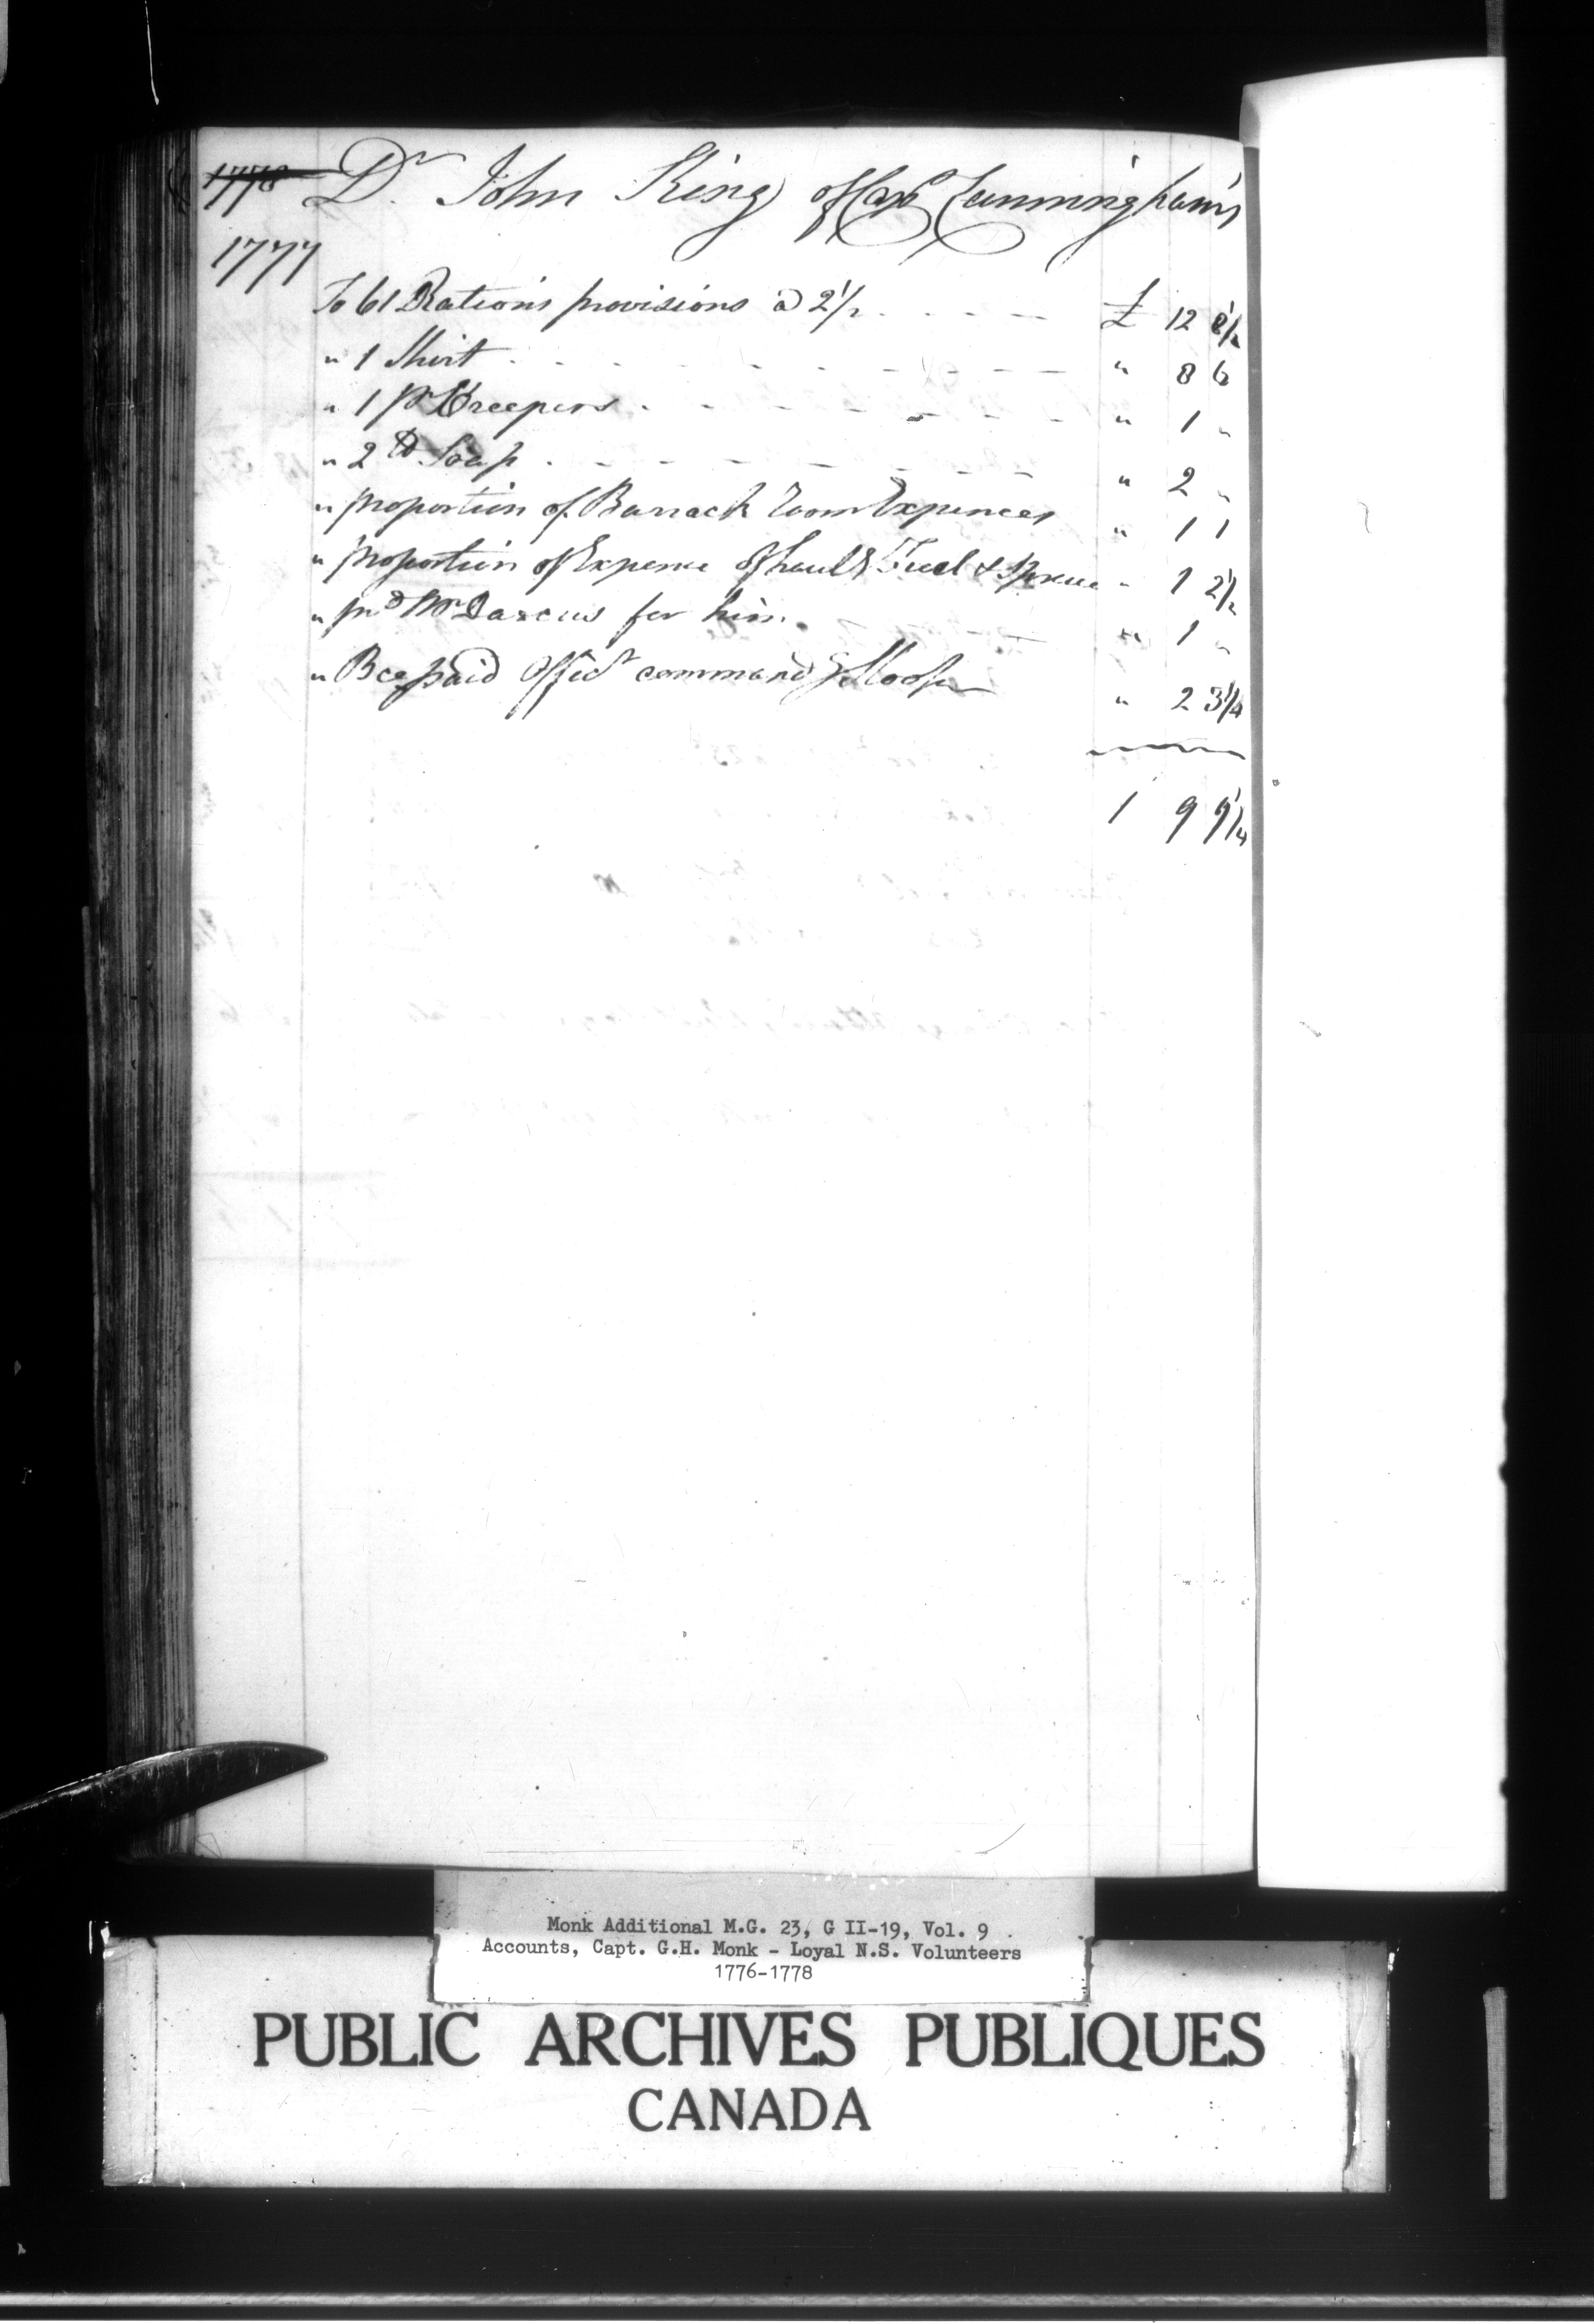 1778 Dr. John King of Capt Cunningham's
1777
To 61 Rations provisions @ 2½ £ 12 8½
" 1 Shirt " 8 6
" 1 pr Creepers " 1 "
" 2 lb Soap " 2 "
" proportion of Barrack Room Expences " 1 1
" proportion of Expence of haulg Fuel & Spruce " 1 2½
" pd Mr for him " 1 "
" paid Officr commandg Sloop " 2 3¼
1 9 9¼
Monk Additional M.G. 23, G II-19, Vol. 9
Accounts, Capt. G.H. Monk - Loyal N.S. Volunteers
1776-1778
PUBLIC ARCHIVES PUBLIQUES
CANADA